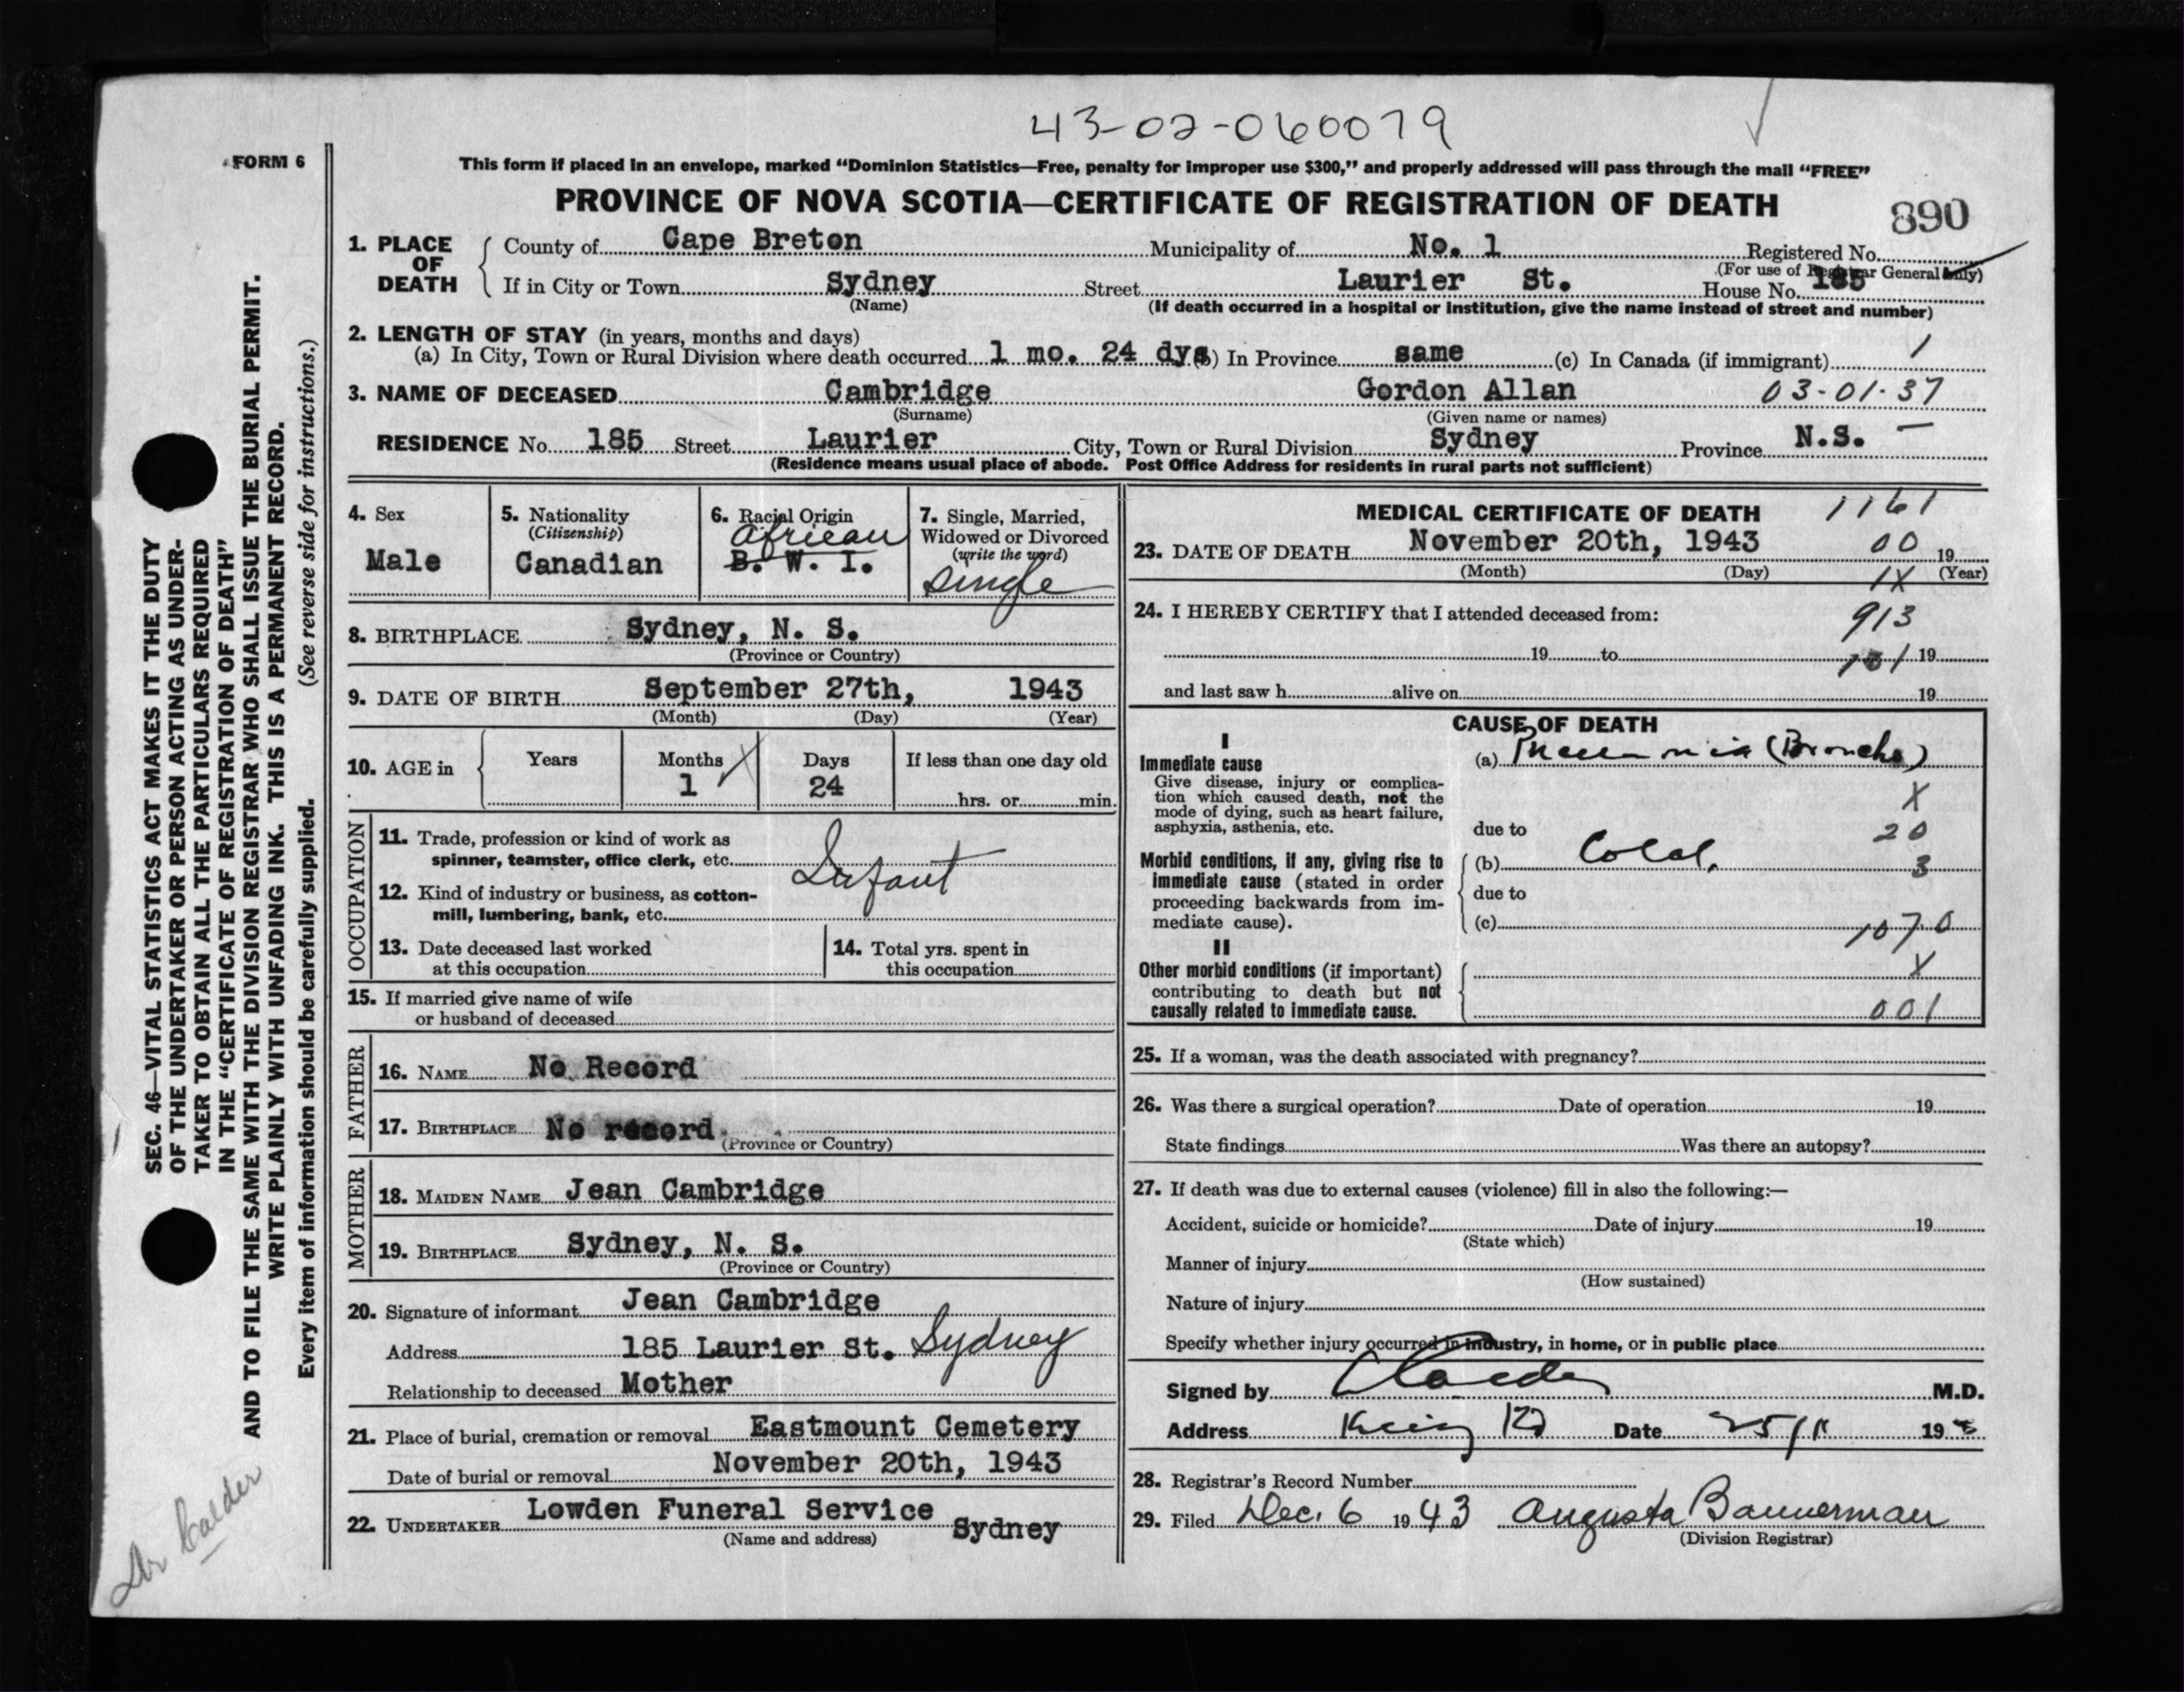 43-02-060079
FORM 6
This form if placed in an envelope, marked “Dominion Statistics—Free, penalty for improper use $300,” and properly addressed will pass through the mail “FREE”
PROVINCE OF NOVA SCOTIA—CERTIFICATE OF REGISTRATION OF DEATH
890
1. PLACE OF DEATH County of Cape Breton Municipality of No. 1 Registered No.
(For use of Registrar General only)
If in City or Town Sydney Street Laurier St. House No. 185
(Name) (If death occurred in a hospital or institution, give the name instead of street and number)
2. LENGTH OF STAY (in years, months and days)
(a) In City, Town or Rural Division where death occurred 1 mo. 24 dys (b) In Province same (c) In Canada (if immigrant) 1
3. NAME OF DECEASED Cambridge Gordon Allan 03-01-37
(Surname) (Given name or names)
RESIDENCE No. 185 Street Laurier City, Town or Rural Division Sydney Province N.S. —
(Residence means usual place of abode. Post Office Address for residents in rural parts not sufficient)
4. Sex
Male
5. Nationality
(Citizenship)
Canadian
6. Racial Origin
African
B. W. I.
7. Single, Married,
Widowed or Divorced
(write the word)
single
8. BIRTHPLACE Sydney, N. S.
(Province or Country)
9. DATE OF BIRTH September 27th, 1943
(Month) (Day) (Year)
10. AGE in Years Months Days If less than one day old
1 X 24 hrs. or min.
OCCUPATION
11. Trade, profession or kind of work as
spinner, teamster, office clerk, etc. Infant
12. Kind of industry or business, as cotton-
mill, lumbering, bank, etc.
13. Date deceased last worked
at this occupation
14. Total yrs. spent in
this occupation
15. If married give name of wife
or husband of deceased
FATHER
16. NAME No Record
17. BIRTHPLACE No record
(Province or Country)
MOTHER
18. MAIDEN NAME Jean Cambridge
19. BIRTHPLACE Sydney, N. S.
(Province or Country)
20. Signature of informant Jean Cambridge
Address 185 Laurier St. Sydney
Relationship to deceased Mother
21. Place of burial, cremation or removal Eastmount Cemetery
Date of burial or removal November 20th, 1943
22. UNDERTAKER Lowden Funeral Service Sydney
(Name and address)
MEDICAL CERTIFICATE OF DEATH 1161
23. DATE OF DEATH November 20th, 1943 00 19
(Month) (Day) (Year)
1X
24. I HEREBY CERTIFY that I attended deceased from: 913
19 to 19
and last saw h alive on 19
CAUSE OF DEATH
I
Immediate cause
Give disease, injury or complica-
tion which caused death, not the
mode of dying, such as heart failure,
asphyxia, asthenia, etc.
(a) Pneumonia (Broncho)
X
due to 20
Morbid conditions, if any, giving rise to
immediate cause (stated in order
proceeding backwards from im-
mediate cause).
(b) Cold. 3
due to
(c) 107.0
II
Other morbid conditions (if important)
contributing to death but not
causally related to immediate cause.
X
001
25. If a woman, was the death associated with pregnancy?
26. Was there a surgical operation? Date of operation 19
State findings Was there an autopsy?
27. If death was due to external causes (violence) fill in also the following:—
Accident, suicide or homicide? Date of injury 19
(State which)
Manner of injury
(How sustained)
Nature of injury
Specify whether injury occurred in industry, in home, or in public place
Signed by M.D.
Address King Rd Date 25/11 19
28. Registrar's Record Number
29. Filed Dec. 6 1943 Augusta Bannerman
(Division Registrar)
SEC. 46—VITAL STATISTICS ACT MAKES IT THE DUTY
OF THE UNDERTAKER OR PERSON ACTING AS UNDER-
TAKER TO OBTAIN ALL THE PARTICULARS REQUIRED
IN THE “CERTIFICATE OF REGISTRATION OF DEATH”
AND TO FILE THE SAME WITH THE DIVISION REGISTRAR WHO SHALL ISSUE THE BURIAL PERMIT.
WRITE PLAINLY WITH UNFADING INK. THIS IS A PERMANENT RECORD.
Every item of information should be carefully supplied. (See reverse side for instructions.)
Dr Calder